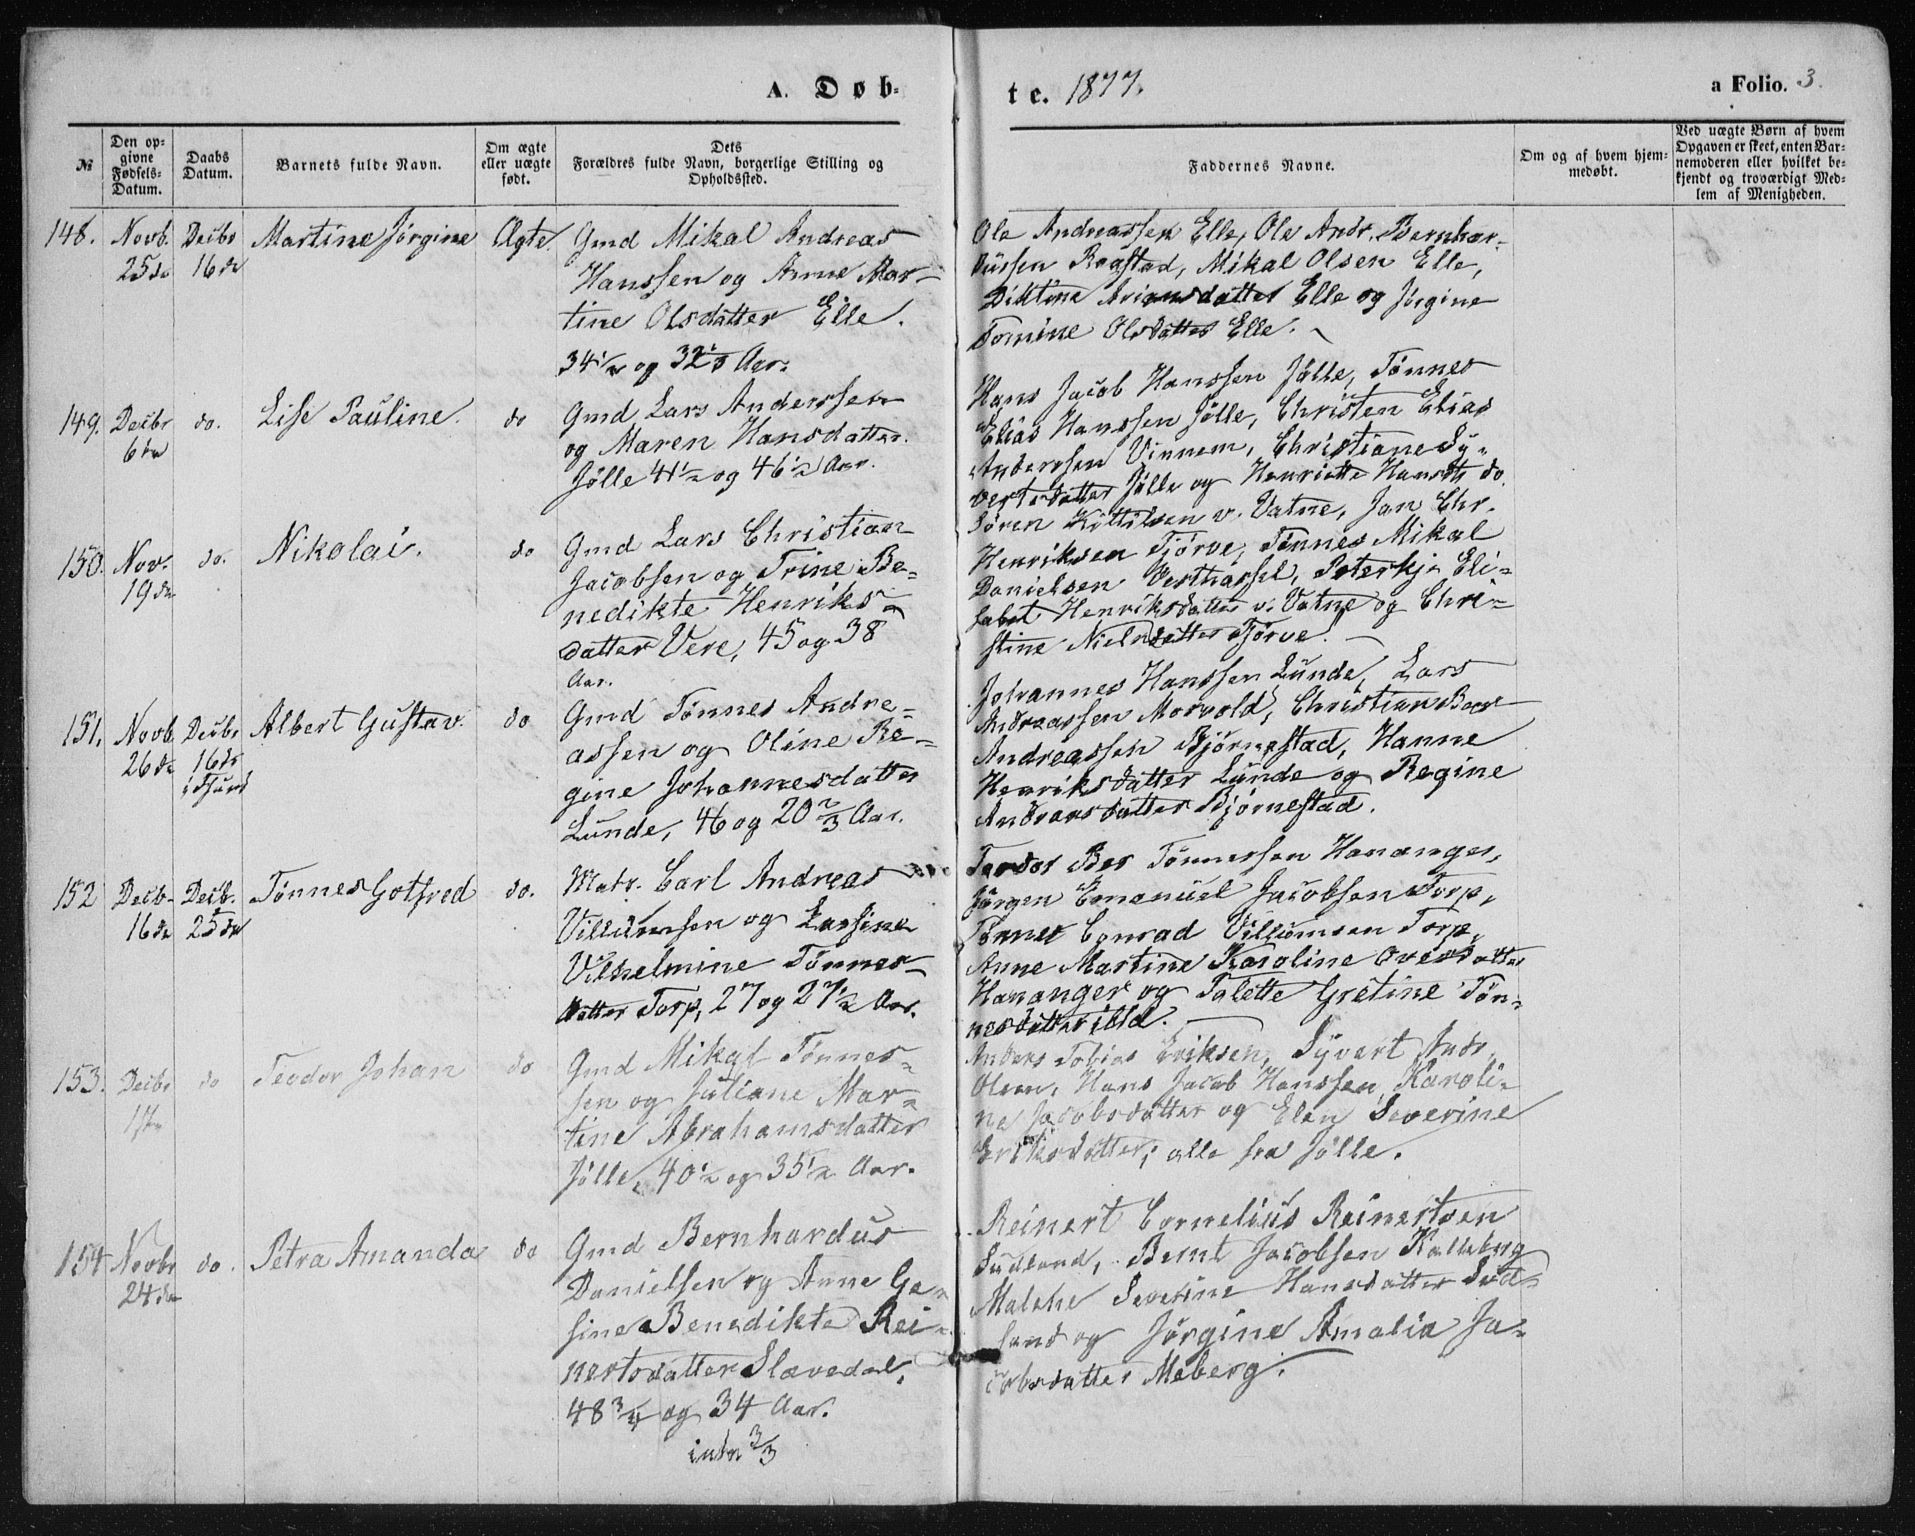 A. Døb-
te. 1877.
a Folio. 3.
№
Den op-
givne
Fødsels-
Datum.
Daabs
Datum.
Barnets fulde Navn.
Om ægte
eller uægte
født.
Dets
Forældres fulde Navn, borgerlige Stilling og
Opholdssted.
Faddernes Navne.
Om og af hvem hjem-
medøbt.
Ved uægte Børn af hvem
Opgaven er skeet, enten Bar-
nemoderen eller hvilket be-
kjendt og troværdigt Med-
lem af Menigheden.
148.
Novb.
25de
Decbr
16de
Martine Jørgine
Ægte
Gmd Mikal Andreas
Hanssen og Anne Mar-
tine Olsdatter Elle.
34½ og 32⅓ Aar.
Ole Andreassen Elle, Ole Andr. Bernhar-
dussen Rogstad, Mikal Olsen Elle,
Ariansdatter Elle og Jørgine
Tomine Olsdatter Elle.
149.
Decbr
6te
do.
Lise Pauline.
do
Gmd Lars Anderssen
og Maren Hansdatter
Jølle 41½ og 46½ Aar.
Hans Jacob Hanssen Jølle, Tønnes
Elias Hanssen Jølle, Christen Elias
Anderssen Vinnem, Christiane Sy-
vertsdatter Jølle og Henriette Hansdtr do.
150.
Nov.
19de
do.
Nikolai.
do
Gmd Lars Christian
Jacobsen og Trine Be-
nedikte Henriks-
datter Vere, 45 og 38
Aar.
Søren Kittelsen v. Vatne, Jan Chr.
Henriksen Tjørve, Tønnes Mikal
Danielsen Vesthassel, Peterkje Eli-
sabet Henriksdatter v. Vatne og Chri-
stine Nielsdatter Tjørve.
151.
Novb
26de
Decbr
16de
i
Albert Gustav.
do
Gmd Tønnes Andre-
assen og Oline Re-
gine Johannesdatter
Lunde, 46 og 20⅔ Aar.
Johannes Hanssen Lunde, Lars
Andreassen Morvold, Christian Beer
Andreassen Bjørnestad, Hanne
Henriksdatter Lunde og Regine
Andreasdatter Bjørnestad.
152
Decb.
16de
Decb.
25de
Tønnes Gotfred
do.
Matr. Carl Andreas
Villumsen og Larsine
Vilhelmine Tønnes-
datter Torp, 27 og 27½ Aar.
Teodor Ber Tønnessen Hananger,
Jørgen Emanuel Jacobsen Torp,
Tønnes Conrad Villumsen Torp,
Anne Martine Karoline Ovesdatter
Hananger og Talette Gretine Tøn-
nesdatter ibid.
153.
Decbr
1ste
do
Teodor Johan
do
Gmd Mikal Tønnes-
sen og Juliane Mar-
tine Abrahamsdatter
Jølle, 40½ og 35½ Aar.
Anders Tobias Eriksen, Syvert Andr.
Olsen, Hans Jacob Hanssen, Karoli-
ne Jacobsdatter og Elen Severine
Eriksdatter, alle fra Jølle.
154
Novbr
24de
do.
Petra Amanda
do
Gmd Bernhardus
Danielsen og Anne Ge-
sine Benedikte Rei-
nertsdatter Slævedal,
48¾ og 34 Aar.
Reinert Cornelius Reinertsen
Sudland, Bernt Jacobsen Kalleberg
Malene Severine Hansdatter Sud-
land og Jørgine Amalia Ja-
cobsdatter Meberg.